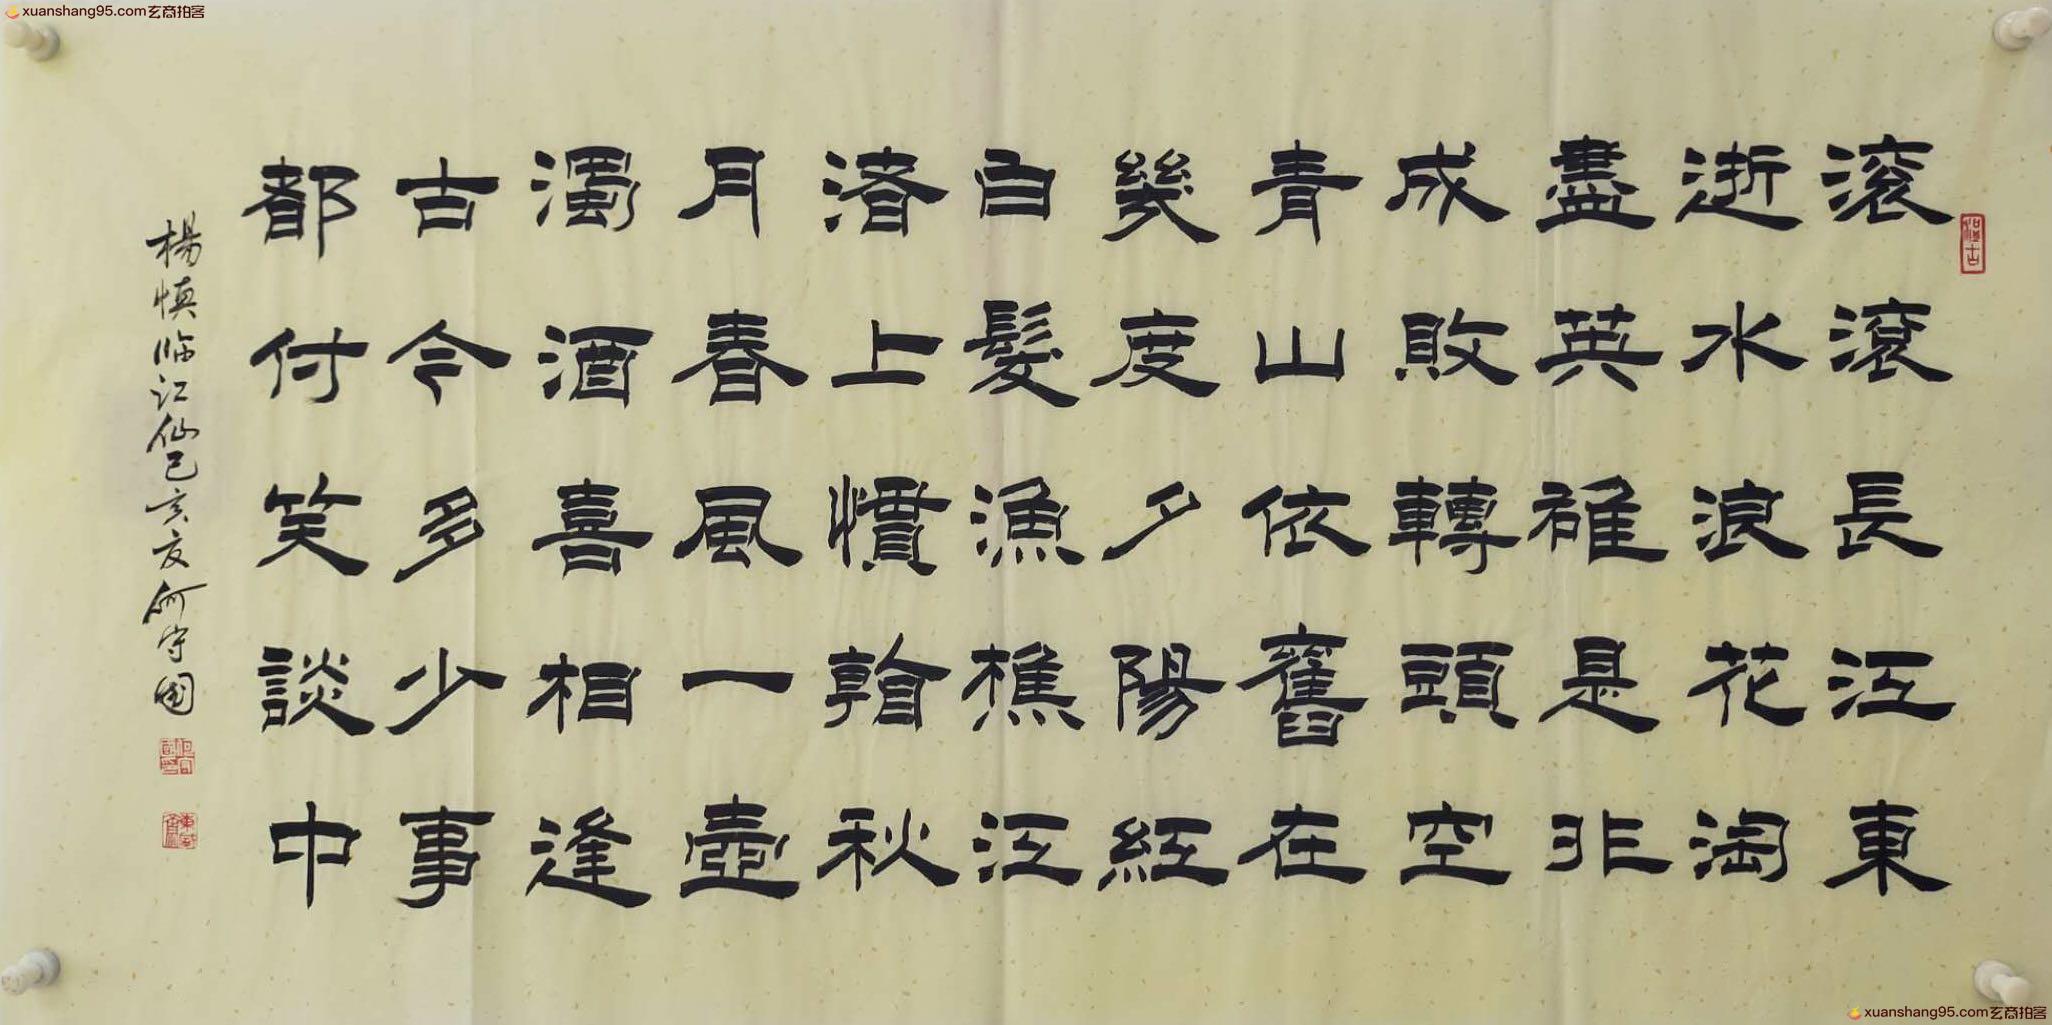 xuanshang95.com玄商拍客
滾滾長江東
逝水浪花淘
盡英雄是非
成敗轉頭空
青山依舊在
幾度夕陽紅
白髮漁樵江
渚上慣看秋
月春風一壺
濁酒喜相逢
古今多少事
都付笑談中
楊慎临江仙己亥夏何守國
xuanshang95.com玄商拍客